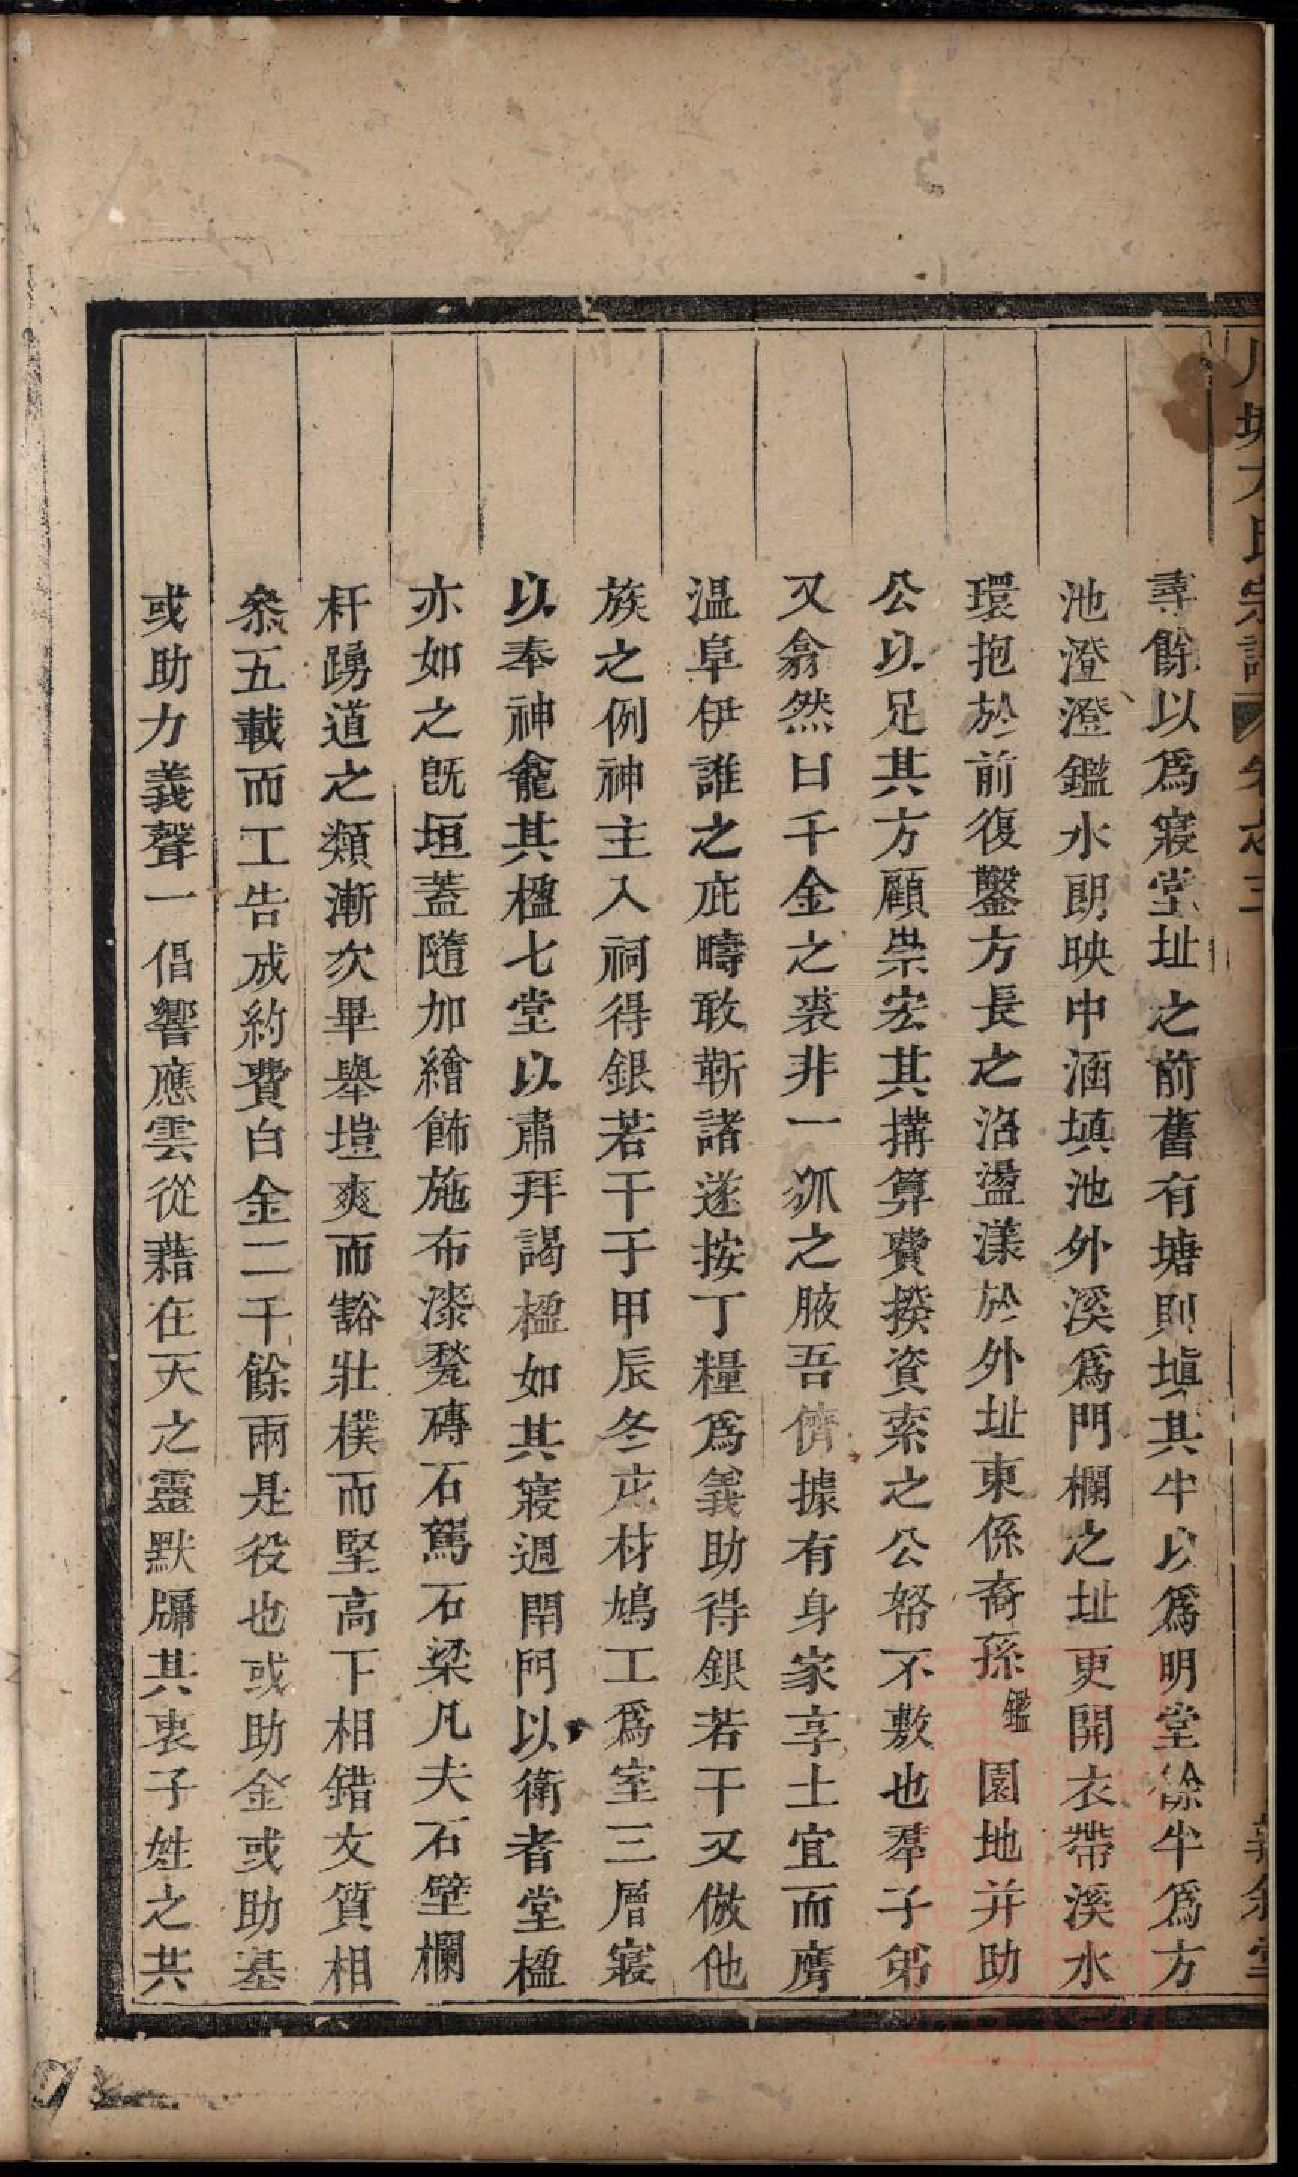 尋餘以爲寢堂址之前舊有塘則塡其半以爲明堂餘半爲方
池澄澄鑑水朗映中涵填池外溪爲門欄之址更開衣帶溪水
環抱於前復鑿方長之沼盪漾於外址東係裔孫鑑園地并助
公以足其方顧崇宏其搆算費揆資索之公帑不敷也羣子弟
又翕然曰千金之裘非一狐之腋吾儕據有身家享土宜而膺
溫阜伊誰之庇疇敢靳諸遂按丁糧爲義助得銀若干又倣他
族之例神主入祠得銀若干于甲辰冬庀材鳩工爲室三層寢
以奉神龕其楹七堂以肅拜謁楹如其寢週閈門以衛者堂楹
亦如之旣垣蓋隨加繪飾施布漆甃磚石駕石梁凡夫石壁欄
杆踴道之類漸次畢舉塏爽而豁壯樸而堅高下相錯文質相
叅五載而工告成約費白金二千餘兩是役也或助金或助基
或助力義聲一倡響應雲從藉在天之靈默牖其衷子姓之共
川塘方氏宗譜 卷之三 敦叙堂